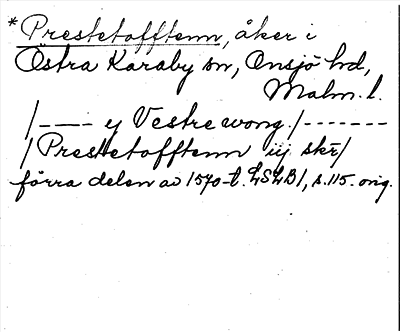 *Prestetofftenn, åker i
Östra Karaby sn, Onsjö hd,
Malm. l.
/--- ej Vestre wong /-------
/Prestetofftenn iij skr/
förra delen av 1570-t. LSLB1, s. 115. orig.